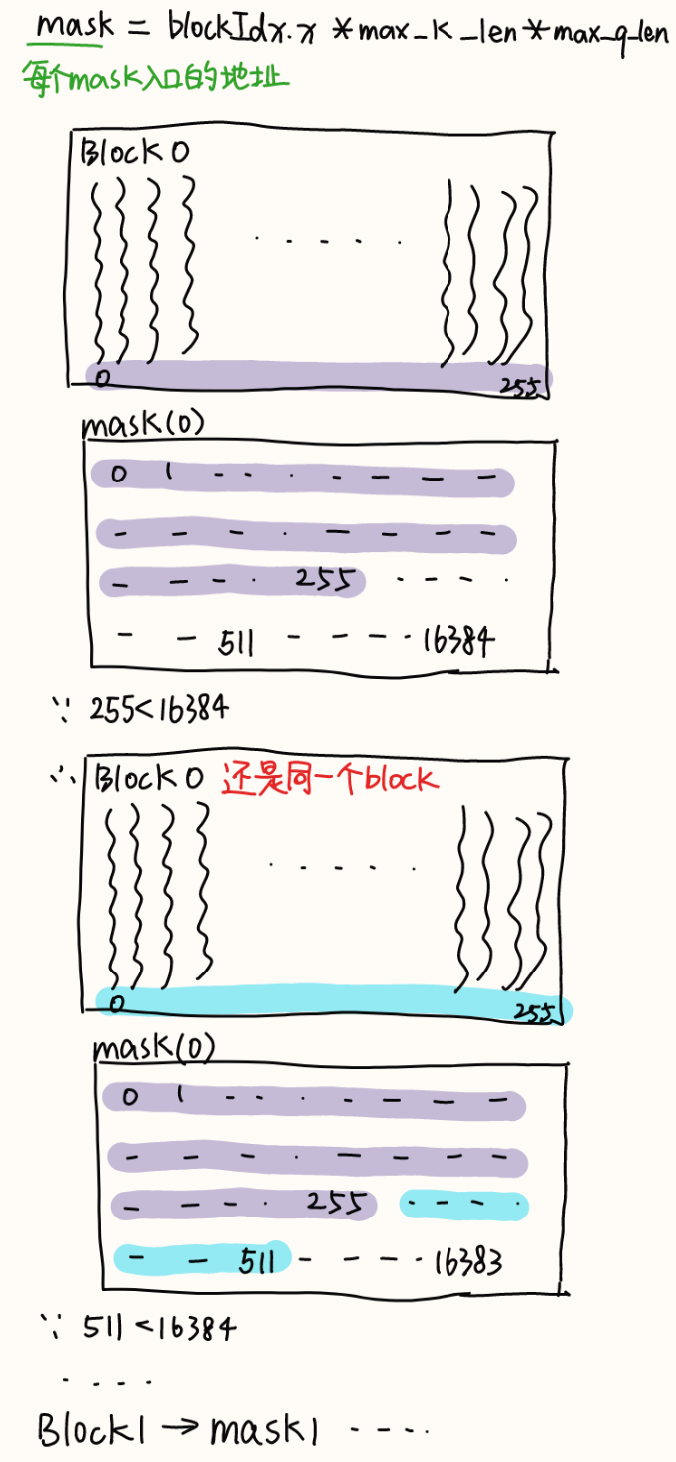 mask = blockIdx.x *max_k_len*max_q_len
每个mask入口的地址
Block 0
· - - - ·
0 255
mask(0)
0 1 - - · - - - -
- - - · - - - -
- - - · 255 · - - ·
- - 511 - - - - · 16384
∵ 255<16384
∴ Block 0 还是同一个block
· - - - ·
0 255
mask(0)
0 1 - - · - - - -
- - - · - - - -
- - - · 255 · - - ·
- - 511 - - - - · 16383
∵ 511<16384
· · · ·
Block1 → mask1 - - - ·